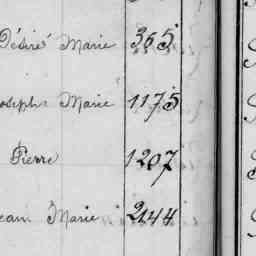 Désiré Marie 365
Joseph Marie 1175
Pierre 1207
Jean Marie 2144